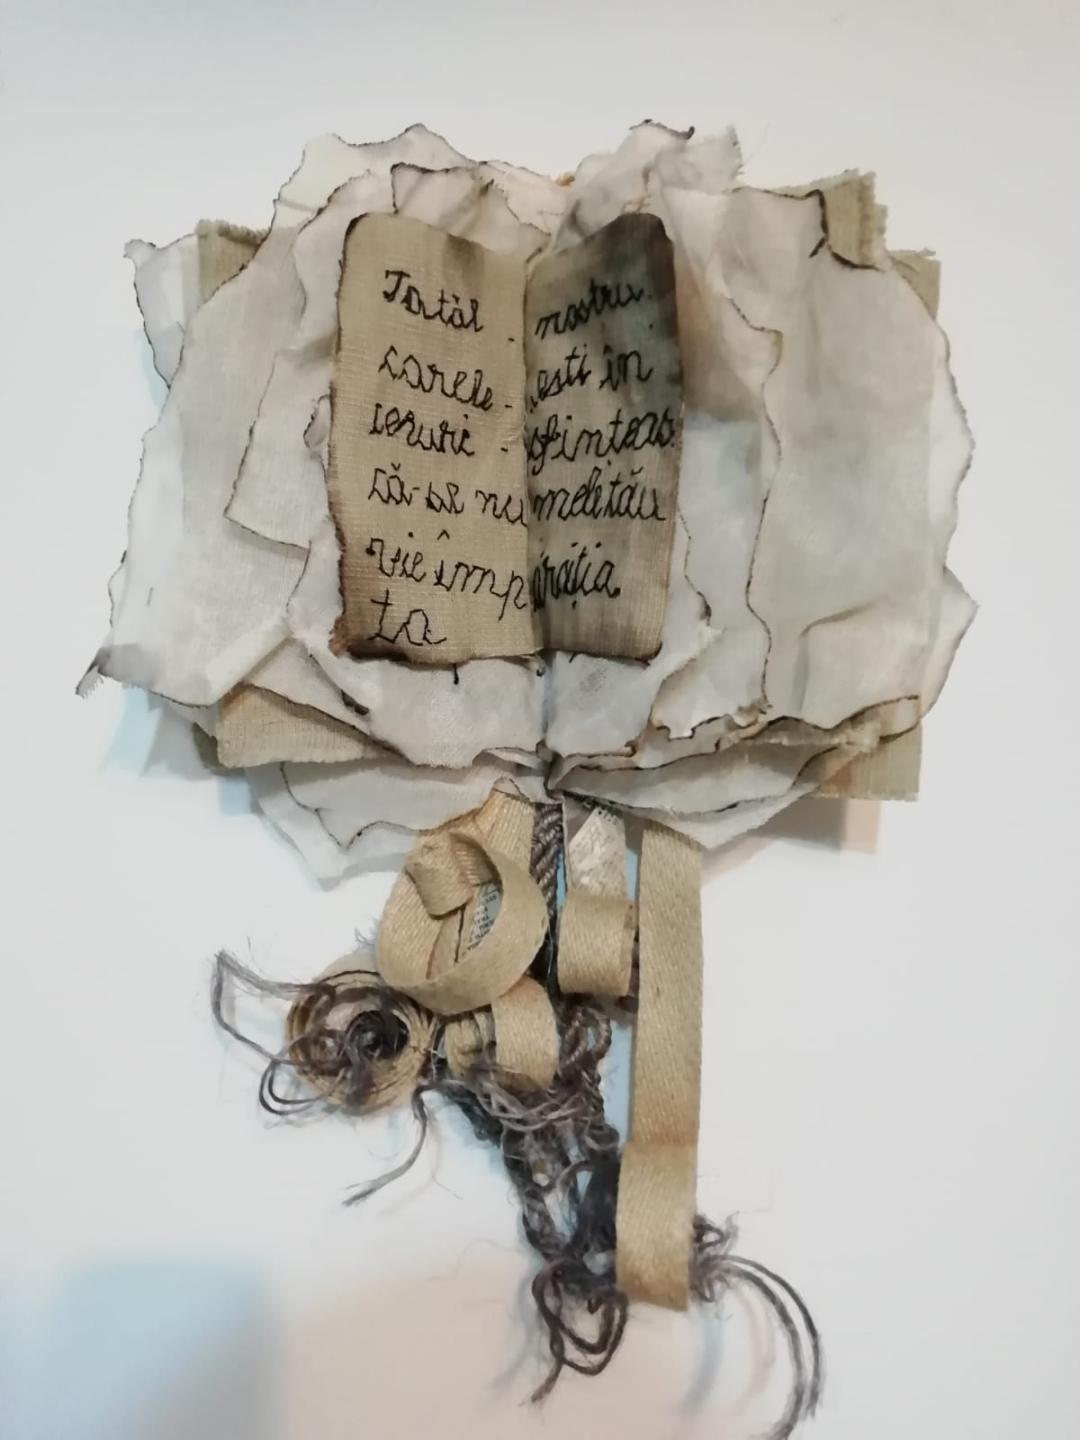 Tatăl - nostru.
carele - ești în
ceruric - sfințeas
că-se numeletău
vie împărăția
ta